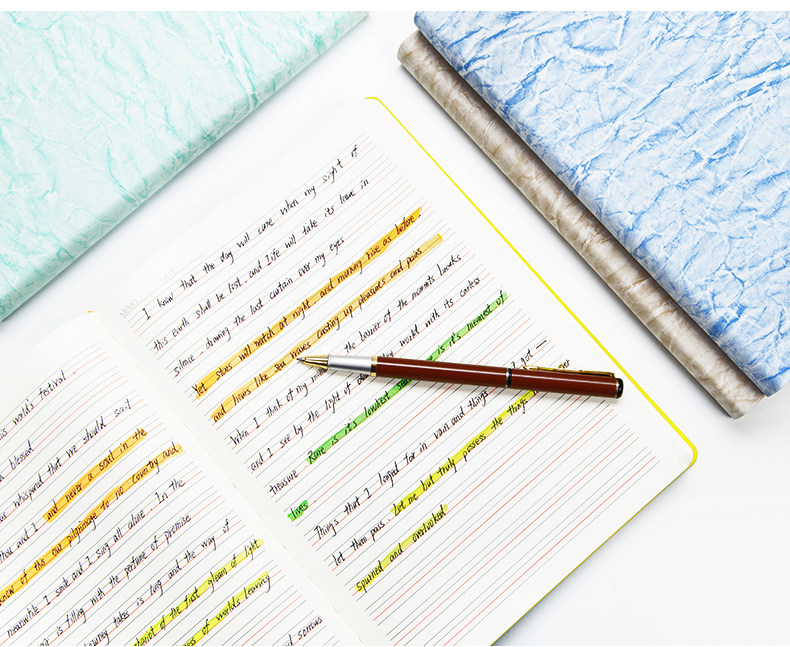 world's festival
blessed
whispered that we should sail
thou and I and never a soul in the
know of this our pilgrimage to no country and
meanwhile I smile and I sing all alone . In the
is filling with the perfume of promise
takes is long and the way of
chariot of the first gleam of light
of worlds leaving
sorrows
MEMO
I know that the day will come when my sight of
this earth shall be lost . and life will take its leave in
silence . drawing the last curtain over my eyes
Yet stars will watch at night . and morning rise as before .
and hours like sea waves casting up pleasures and pains
When I think of my the barrier of the moments breaks
and I see by the light of thy world with its careless
treasure Rare is it's lowliest is it's meanest of
lives
Things that I longed for in vain and things I got —
let them pass . Let me but truly possess the things ever
spurned and overlooked